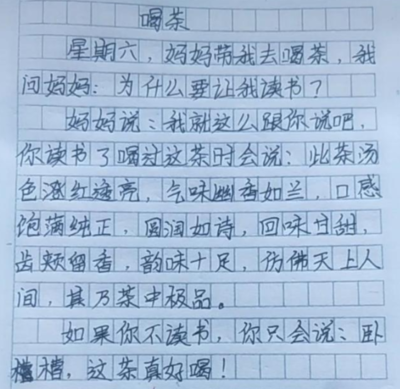 喝茶
星期六，妈妈带我去喝茶，我
问妈妈：为什么要让我读书？
妈妈说：我就这么跟你说吧，
你读书了喝过这茶时会说：此茶汤
色澄红透亮，气味幽香如兰，口感
饱满纯正，圆润如诗，回味甘甜，
齿颊留香，韵味十足，仿佛天上人
间，其乃茶中极品。
如果你不读书，你只会说：卧
槽，这茶真好喝！